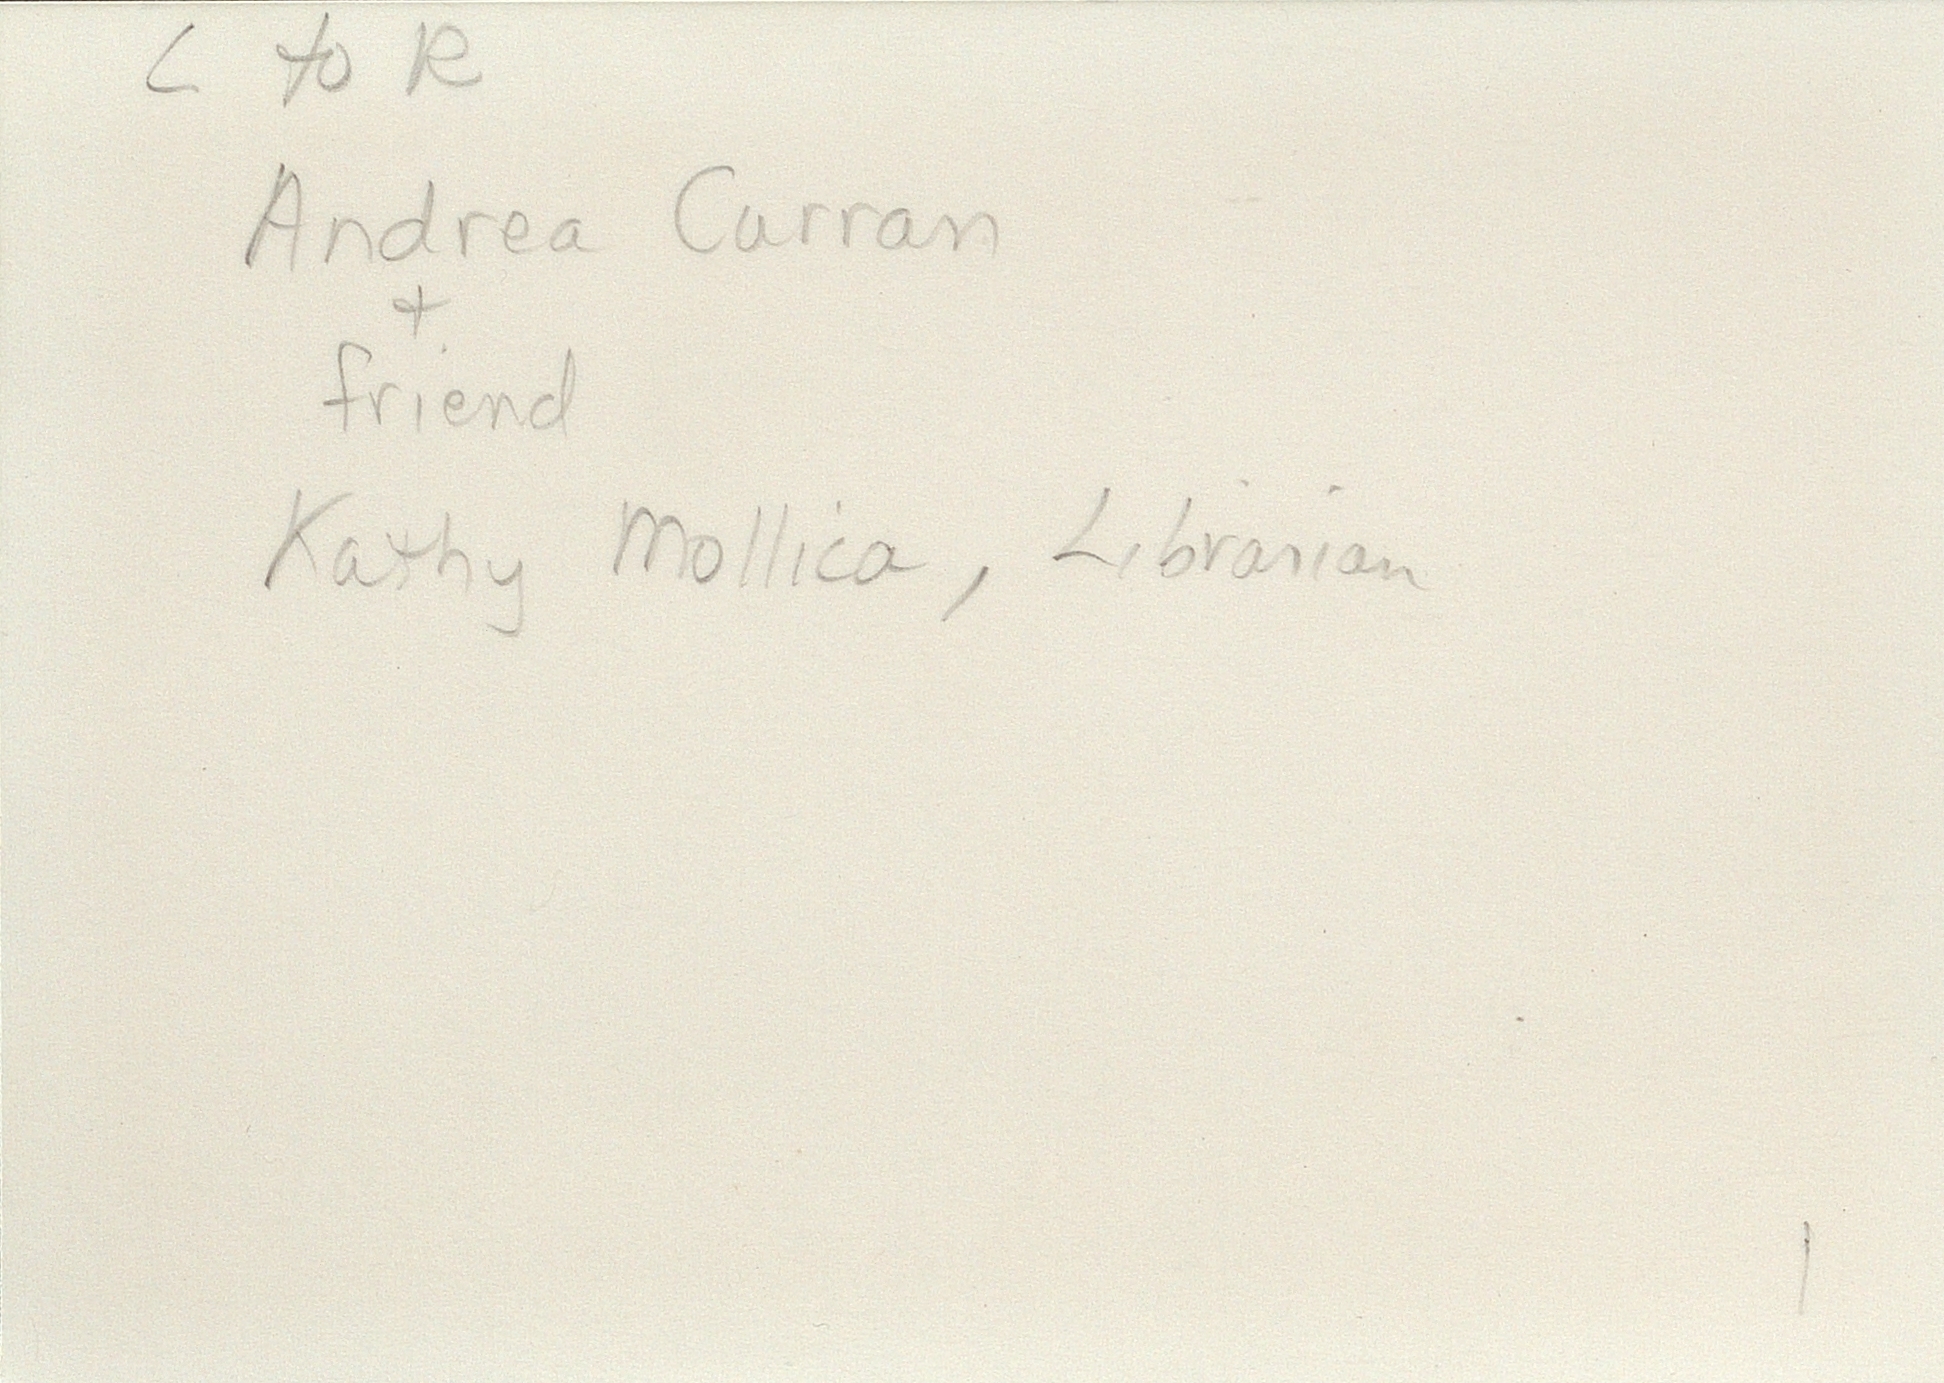 L to R
Andrea Curran
+
friend
Kathy Mollica, Librarian
1